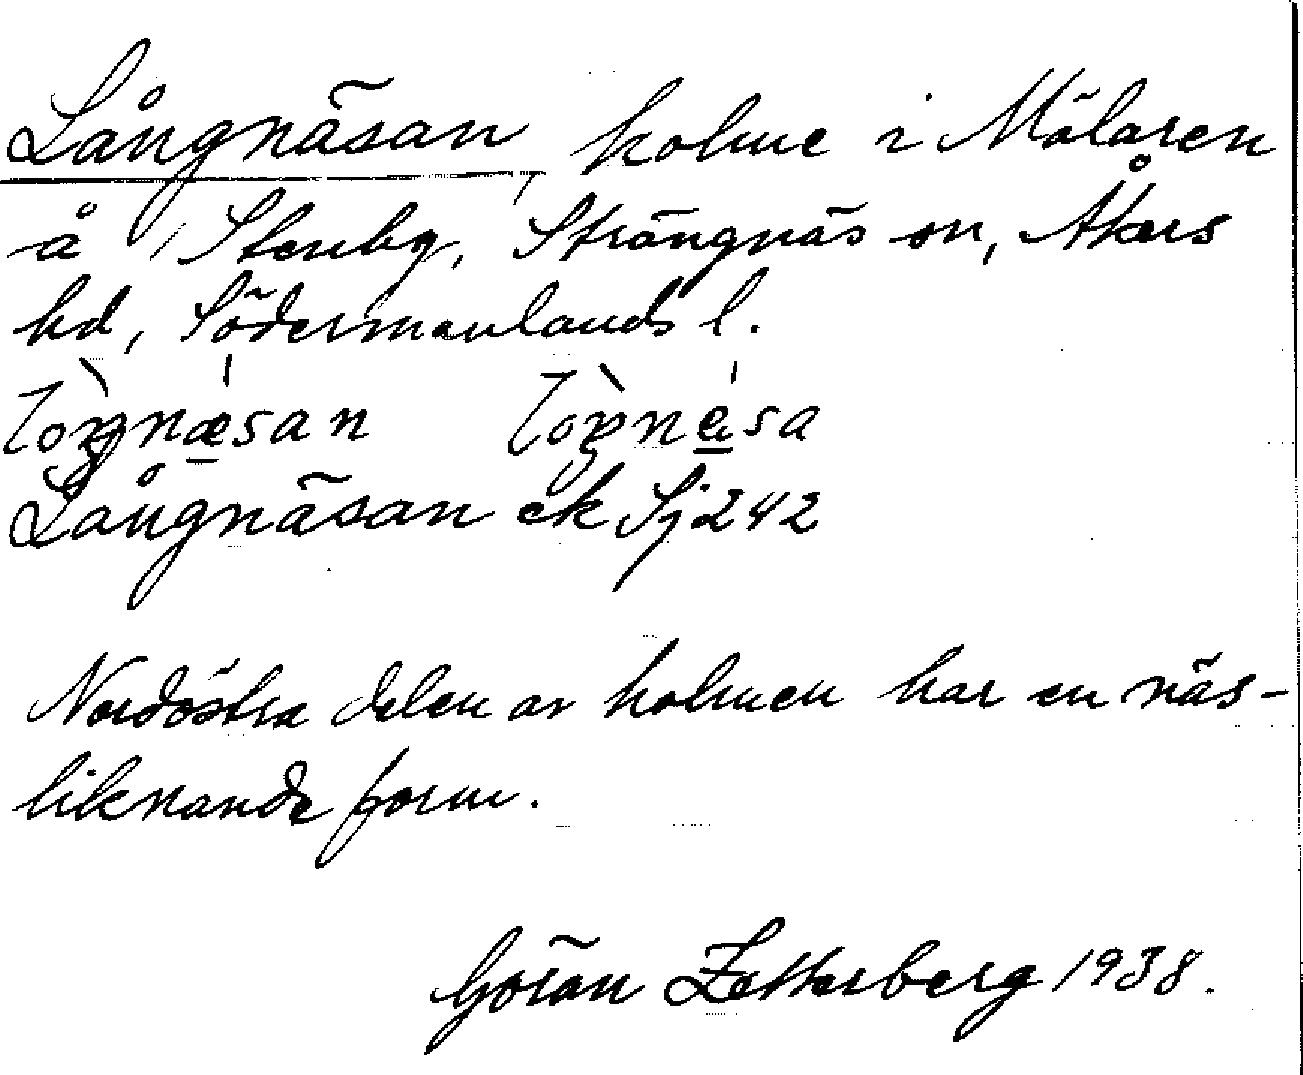 Långnäsan, holme i Mälaren
å Stenby, Strängnäs sn, Åkers
hd, Södermanlands l.
Långnäsan ek Sj 242
Nordöstra delen av holmen har en näs-
liknande form.
Göran Zetterberg 1938.